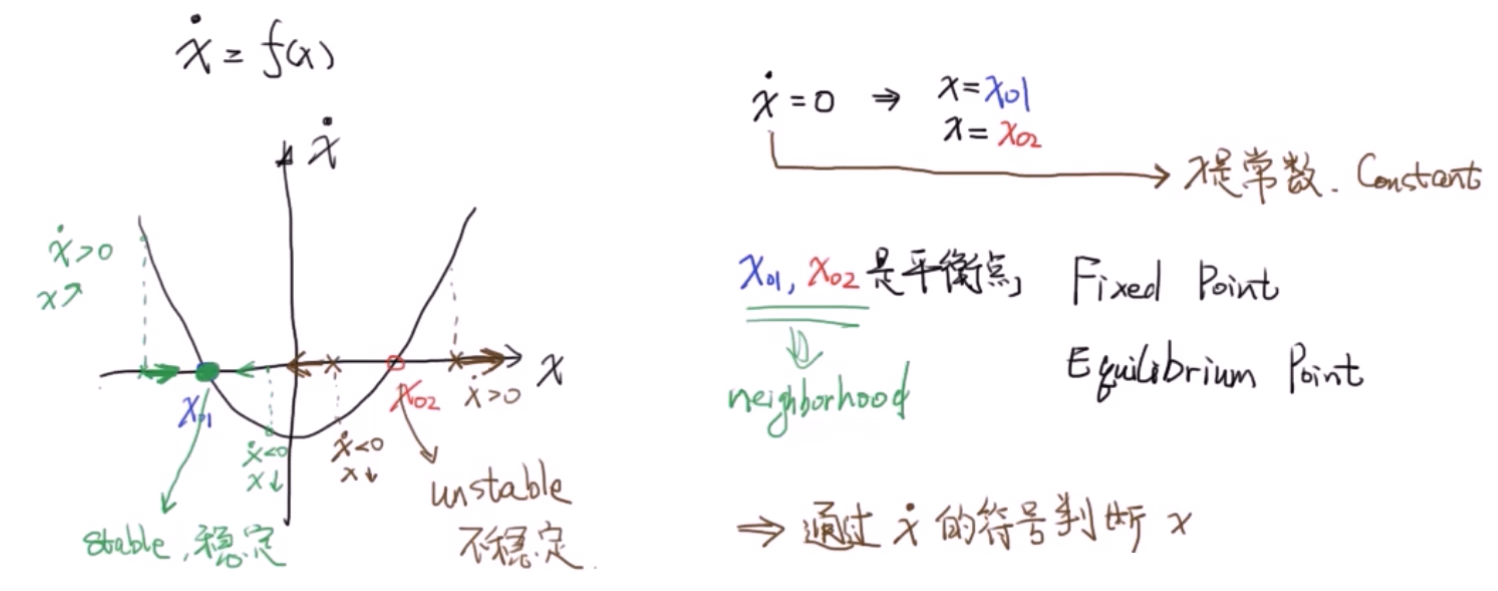 ẋ = f(x)
ẋ
ẋ>0
x↗
x
x₀₁
x₀₂
ẋ>0
ẋ<0
x↓
ẋ<0
x↓
unstable
不稳定.
stable, 稳定
ẋ = 0 ⇒ x = x₀₁
x = x₀₂
x是常数. Constant
x₀₁, x₀₂ 是平衡点, Fixed Point
Equilibrium Point
neighborhood
⇒ 通过 ẋ 的符号判断 x